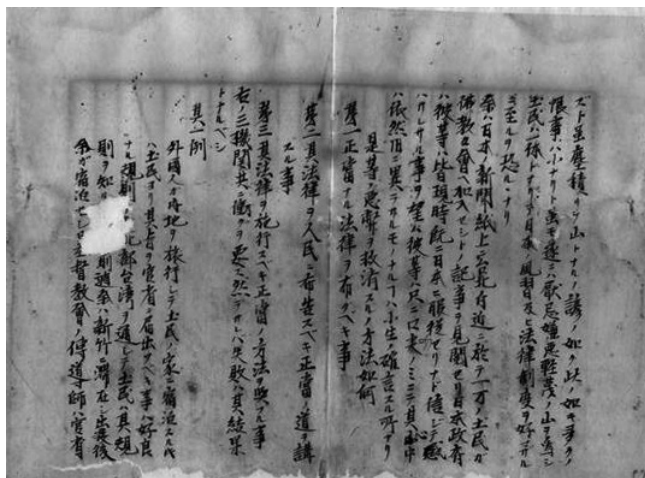 ズト虽塵積リテ山トナルノ諺ノ如ク此ノ如キ事タノ
悵事ハ小ナリト虽モ遂ニハ厭忌嫌悪軽蔑ノ山ヲ為シ
土民ハ一杯トナベテ日本ノ風習及ヒ法律制度ヲ好マザル
ニ至ルヲ恐ルヽナリ
余ハ日本ノ新聞紙上ニ台北府近ニ於テ一万ノ土民ガ
佛教々會ヘ加入セシトノ記事ヲ見聞セリ日本政府
ハ彼等ハ皆現時既ニ日本ニ服従セリナド信ジテ惑
ハサレザル事ヲ望ム彼等ハ只ニ口末ノミニテ其心中
ハ依然旧ニ異ラザルモノナルヿハ小生ノ確言スル所ナリ
是等ノ悪弊ヲ救済スルノ方法如何
第一正当ナル法律ヲ有スベキ事
第二其法律ヲ人民ニ布告スベキ正當ノ道ヲ講
スル事
第三其法律ヲ施行スベキ正當ノ方法ヲ與フル事
右ノ三機関共ニ働クヲ要ス然ラザレバ失敗ハ其結果
トナルベシ
其一例
外國人ガ各地ヲ旅行シテ土民ノ家ニ宿泊スル時
ハ土民ヨリ其旨ヲ官省ニ届出ツベキ事ハ好良
ナル規則 北部台湾ヲ通シテ土民ハ其規
則ヲ知 前週余ハ新竹ニ滞在シ出発後
余ガ宿泊セシ 督教會ノ傳導師ハ官省